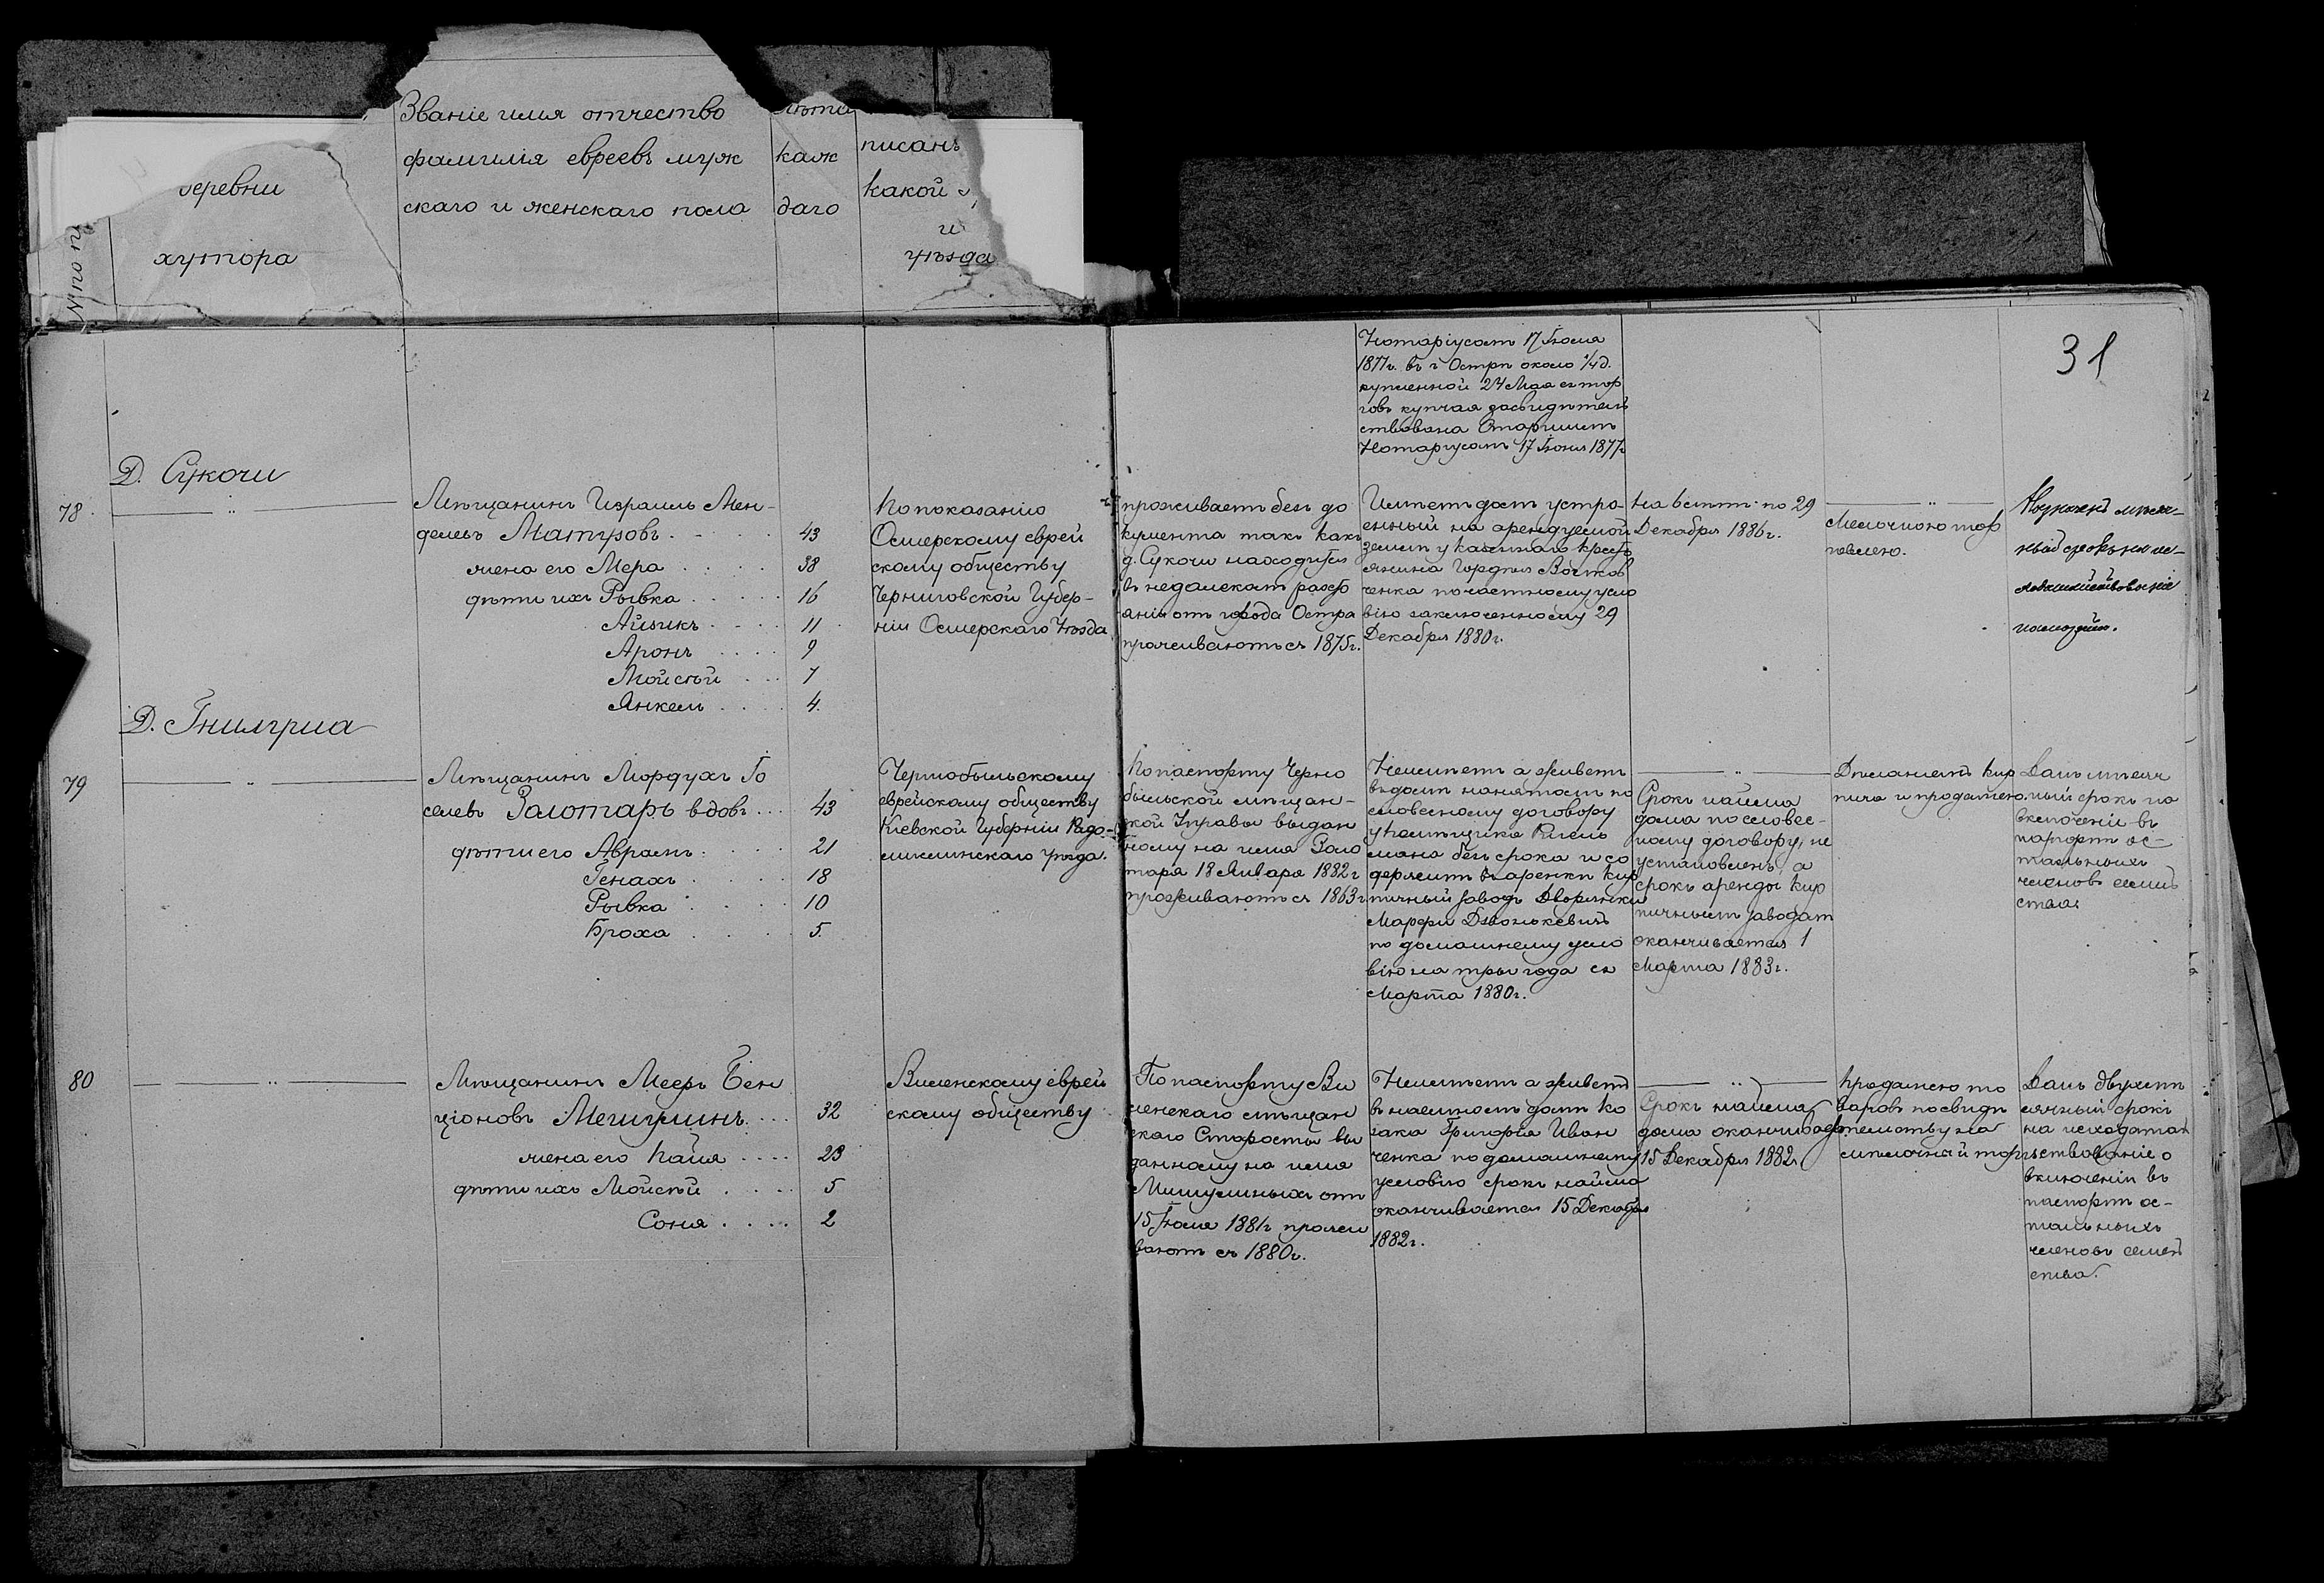 Званіе имя отчество
фамилія евреевъ муж
скаго и женскаго пола
лѣта
каж
даго
писанъ
какой
и
уѣзда
деревни
хутора
№ по
31
Нотаріусомъ 17 Іюня
1877г. въ г Острѣ около 1/4 д.
купленной 24 Мая съ тор
говъ купчая засвидѣтель
ствована Старшимъ
Нотаріусомъ 17 Іюня 1877г
Д. Сукочи
78
Мѣщанинъ Израиль Мен-
делевъ Матузовъ
43
жена его Мера
38
дѣти ихъ Рывка
16
Айзикъ
11
Аронъ
9
Мойсѣй
7
Янкель
4.
По показанію
Остерскому еврей
скому обществу
Черниговской Губер-
ніи Остерскаго Уѣзда
проживаетъ безъ до
кумента такъ какъ
д. Сукочи находится
въ недалекомъ разсто
аніи отъ города Остра
проживаютъ съ 1875г.
Имѣетъ домъ устро-
енный на арендуемой
земли у казеннаго крест
янина Гордѣя
ченка по частному усло
вію заключенному 29
Декабря 1880г.
На 6 лѣтъ по 29
Декабря 1886г.
Мелочною тор
говлею.
Двухъ мѣсяч-
ный срокъ на ис-
Д. Гнилуша
79
Мѣщанинъ Мордухъ Іо
селевъ Золотаръ вдовъ
43
дѣти его Аврамъ
21
Генахъ
18
Рывка
10
Броха
5.
Чернобыльскому
еврейскому обществу
Кіевской Губерніи Радо-
мысльскаго уѣзда.
По паспорту Черно
быльской мѣщан-
ской Управы выдан
ному на имя Золо
таря 18 Января 1882г
проживаютъ съ 1863г
Неимѣетъ а живетъ
въ домѣ нанятомъ по
словесному договору
у помѣщика
безъ срока и со
держитъ въ арендѣ кир
пичный заводъ Дворянки
Марфи
по домашнему усло
вію на три года съ
Марта 1880г.
Срокъ найма
дома по словес-
ному договору, не
установленъ, а
срокъ аренды кир
пичнымъ заводом
оканчивается 1
Марта 1883г.
Дѣланіемъ кир
пича и продажею.
Данъ мѣсяч
ный срокъ на
включеніе въ
паспортъ ос-
тальныхъ
членовъ семѣй
ства.
80
Мѣщанинъ Мееръ Бен
ціоновъ Мешулинъ
32
жена его Хая
23
дѣти ихъ Мойсѣй
5
Соня
2
Виленскому еврей
скому обществу
По паспорту Ви
ленскаго мѣщан
скаго Старосты вы
данному на имя
Мишулиныхъ отъ
15 Іюля 1881г прожи
ваютъ съ 1880г.
Неимѣетъ а живетъ
въ наемномъ домѣ ко
зака Григорія Иван
ченка по домашнему
условію срокъ найма
оканчивается 15 Декабря
1882г.
Срокъ найма
дома оканчивает.
15 Декабря 1882г
Продажею то
варовъ по свидѣ
тельству на
мелочный торг
Данъ двухмѣ
сячный срокъ
на исходатай
ствованіе о
включеніи въ
паспортъ ос-
тальныхъ
членовъ семей
ства.